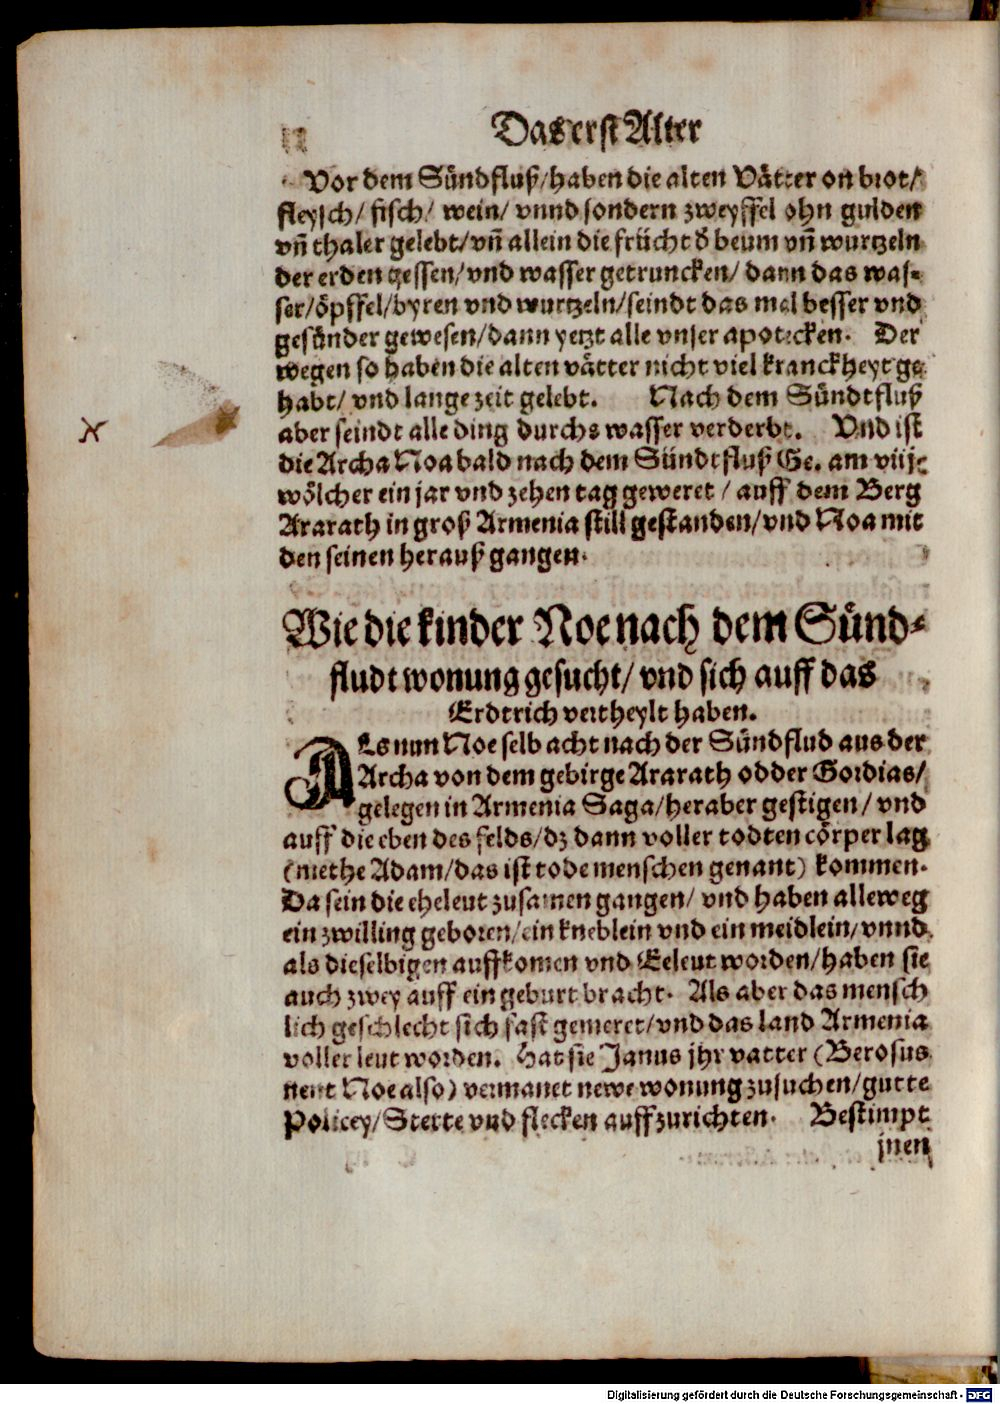 Das erst Alter
Vor dem Sündfluß/haben die alten Vätter on brot/
fleysch/ fisch/ wein/ vnnd sondern zweyffel ohn gulden
vñ thaler gelebt/vñ allein die frücht d̕ beum vñ wurtzeln
der erden gessen/vnd wasser getruncken/ dann das was-
ser/öpffel/byren vnd wurtzeln/seindt das mal besser vnd
gesünder gewesen/dann yetzt alle vnser apotecken. Der
wegen so haben die alten vätter nicht viel kranckheyt ge
habt/ vnd lange zeit gelebt. Nach dem Sündtfluß
aber seindt alle ding durchs wasser verderbt. Vnd ist
die Archa Noa bald nach dem Sündtfluß Ge. am viij.
wölcher ein jar vnd zehen tag geweret / auff dem Berg
Ararath in groß Armenia still gestanden/vnd Noa mit
den seinen herauß gangen.
Wie die kinder Noe nach dem Sünd-
fludt wonung gesucht/ vnd sich auff das
Erdtrich vertheylt haben.
Als nun Noe selb acht nach der Sündflud aus der
Archa von dem gebirge Ararath odder Gordias/
gelegen in Armenia Saga/heraber gestigen/ vnd
auff die eben des felds/dz dann voller todten cörper lag
(methe Adam/das ist tode menschen genant) kommen.
Da sein die eheleut zusamen gangen/ vnd haben alleweg
ein zwilling geboren/ein kneblein vnd ein meidlein/vnnd
als dieselbigen auffkomen vnd Eeleut worden/haben sie
auch zwey auff ein geburt bracht. Als aber das mensch
lich geschlecht sich fast gemeret/vnd das land Armenia
voller leut worden. Hat sie Janus jhr vatter (Berosus
nent Noe also) vermanet newe wonung zusuchen/gutte
Policey/Stette vnd flecken auffzurichten. Bestimpt
jnen
Digitalisierung gefördert durch die Deutsche Forschungsgemeinschaft - DFG